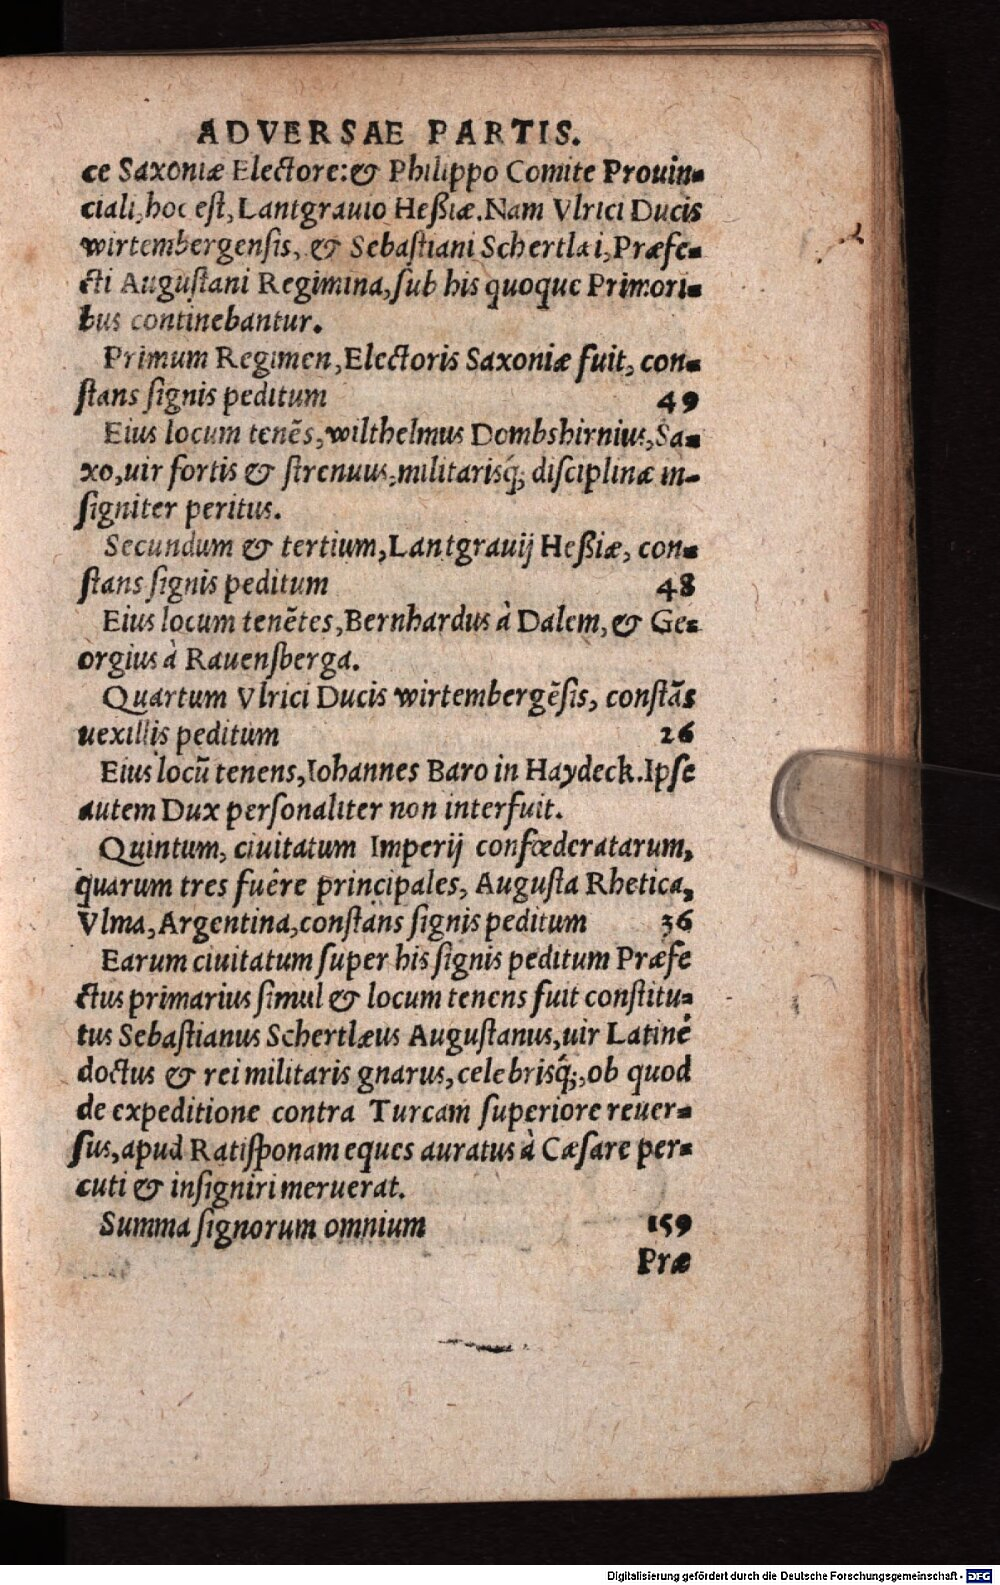 ADVERSAE PARTIS.
ce Saxoniæ Electore: & Philippo Comite Prouin-
ciali, hoc est, Lantgrauio Heßiæ. Nam Vlrici Ducis
wirtembergensis, & Sebastiani Schertlæi, Præfe-
cti Augustani Regimina, sub his quoque Primori-
bus continebantur.
Primum Regimen, Electoris Saxoniæ fuit, con-
stans signis peditum 49
Eius locum tenēs, wilthelmus Dombshirnius, Sa-
xo, uir fortis & strenuus, militarisq́; disciplinæ in-
signiter peritus.
Secundum & tertium, Lantgrauij Heßiæ, con-
stans signis peditum 48
Eius locum tenētes, Bernhardus à Dalem, & Ge-
orgius à Rauensberga.
Quartum Vlrici Ducis wirtembergēsis, constās
uexillis peditum 26
Eius locū tenens, Iohannes Baro in Haydeck. Ipse
autem Dux personaliter non interfuit.
Quintum, ciuitatum Imperij confœderatarum,
quarum tres fuêre principales, Augusta Rhetica,
Vlma, Argentina, constans signis peditum 36
Earum ciuitatum super his signis peditum Præfe
ctus primarius simul & locum tenens fuit constitu-
tus Sebastianus Schertlæus Augustanus, uir Latinè
doctus & rei militaris gnarus, celebrisq́;, ob quod
de expeditione contra Turcam superiore reuer-
sus, apud Ratisponam eques auratus à Cæsare per-
cuti & insigniri meruerat.
Summa signorum omnium 159
Præ
Digitalisierung gefördert durch die Deutsche Forschungsgemeinschaft - DFG